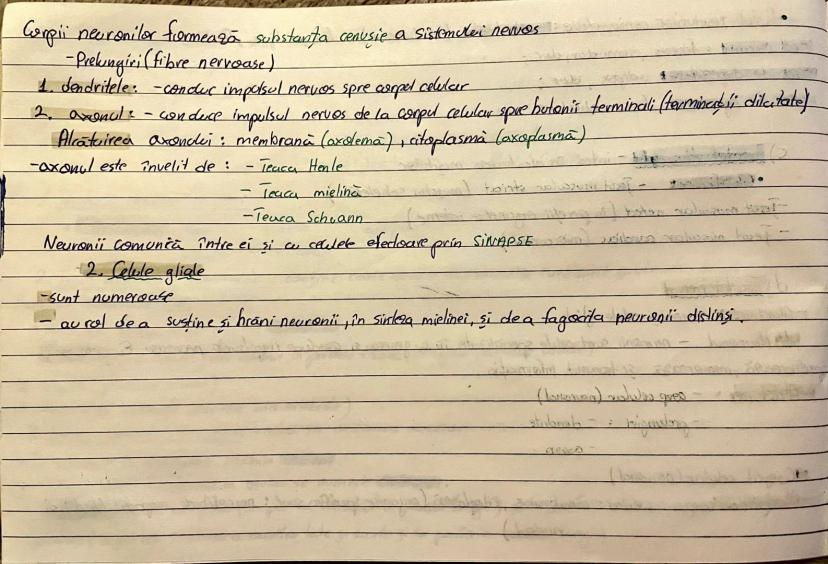 Corpii neuronilor formează substanța cenușie a sistemului nervos
-Prelungiri (fibre nervoase)
1. dendritele: -conduc impulsul nervos spre corpul celular
2. axonul: - conduce impulsul nervos de la corpul celular spre butonii terminali (terminații dilatate)
Alcătuirea axonului: membrană (axolemă), citoplasmă (axoplasmă)
-axonul este învelit de : - Teaca Henle
- Teaca mielină
-Teaca Schwann
Neuronii comunică între ei și cu celulele efectoare prin SINAPSE
2. Celule gliale
-sunt numeroase
- au rol de a susține și hrăni neuronii, în sinteza mielinei, și de a fagocita neuronii distinși.